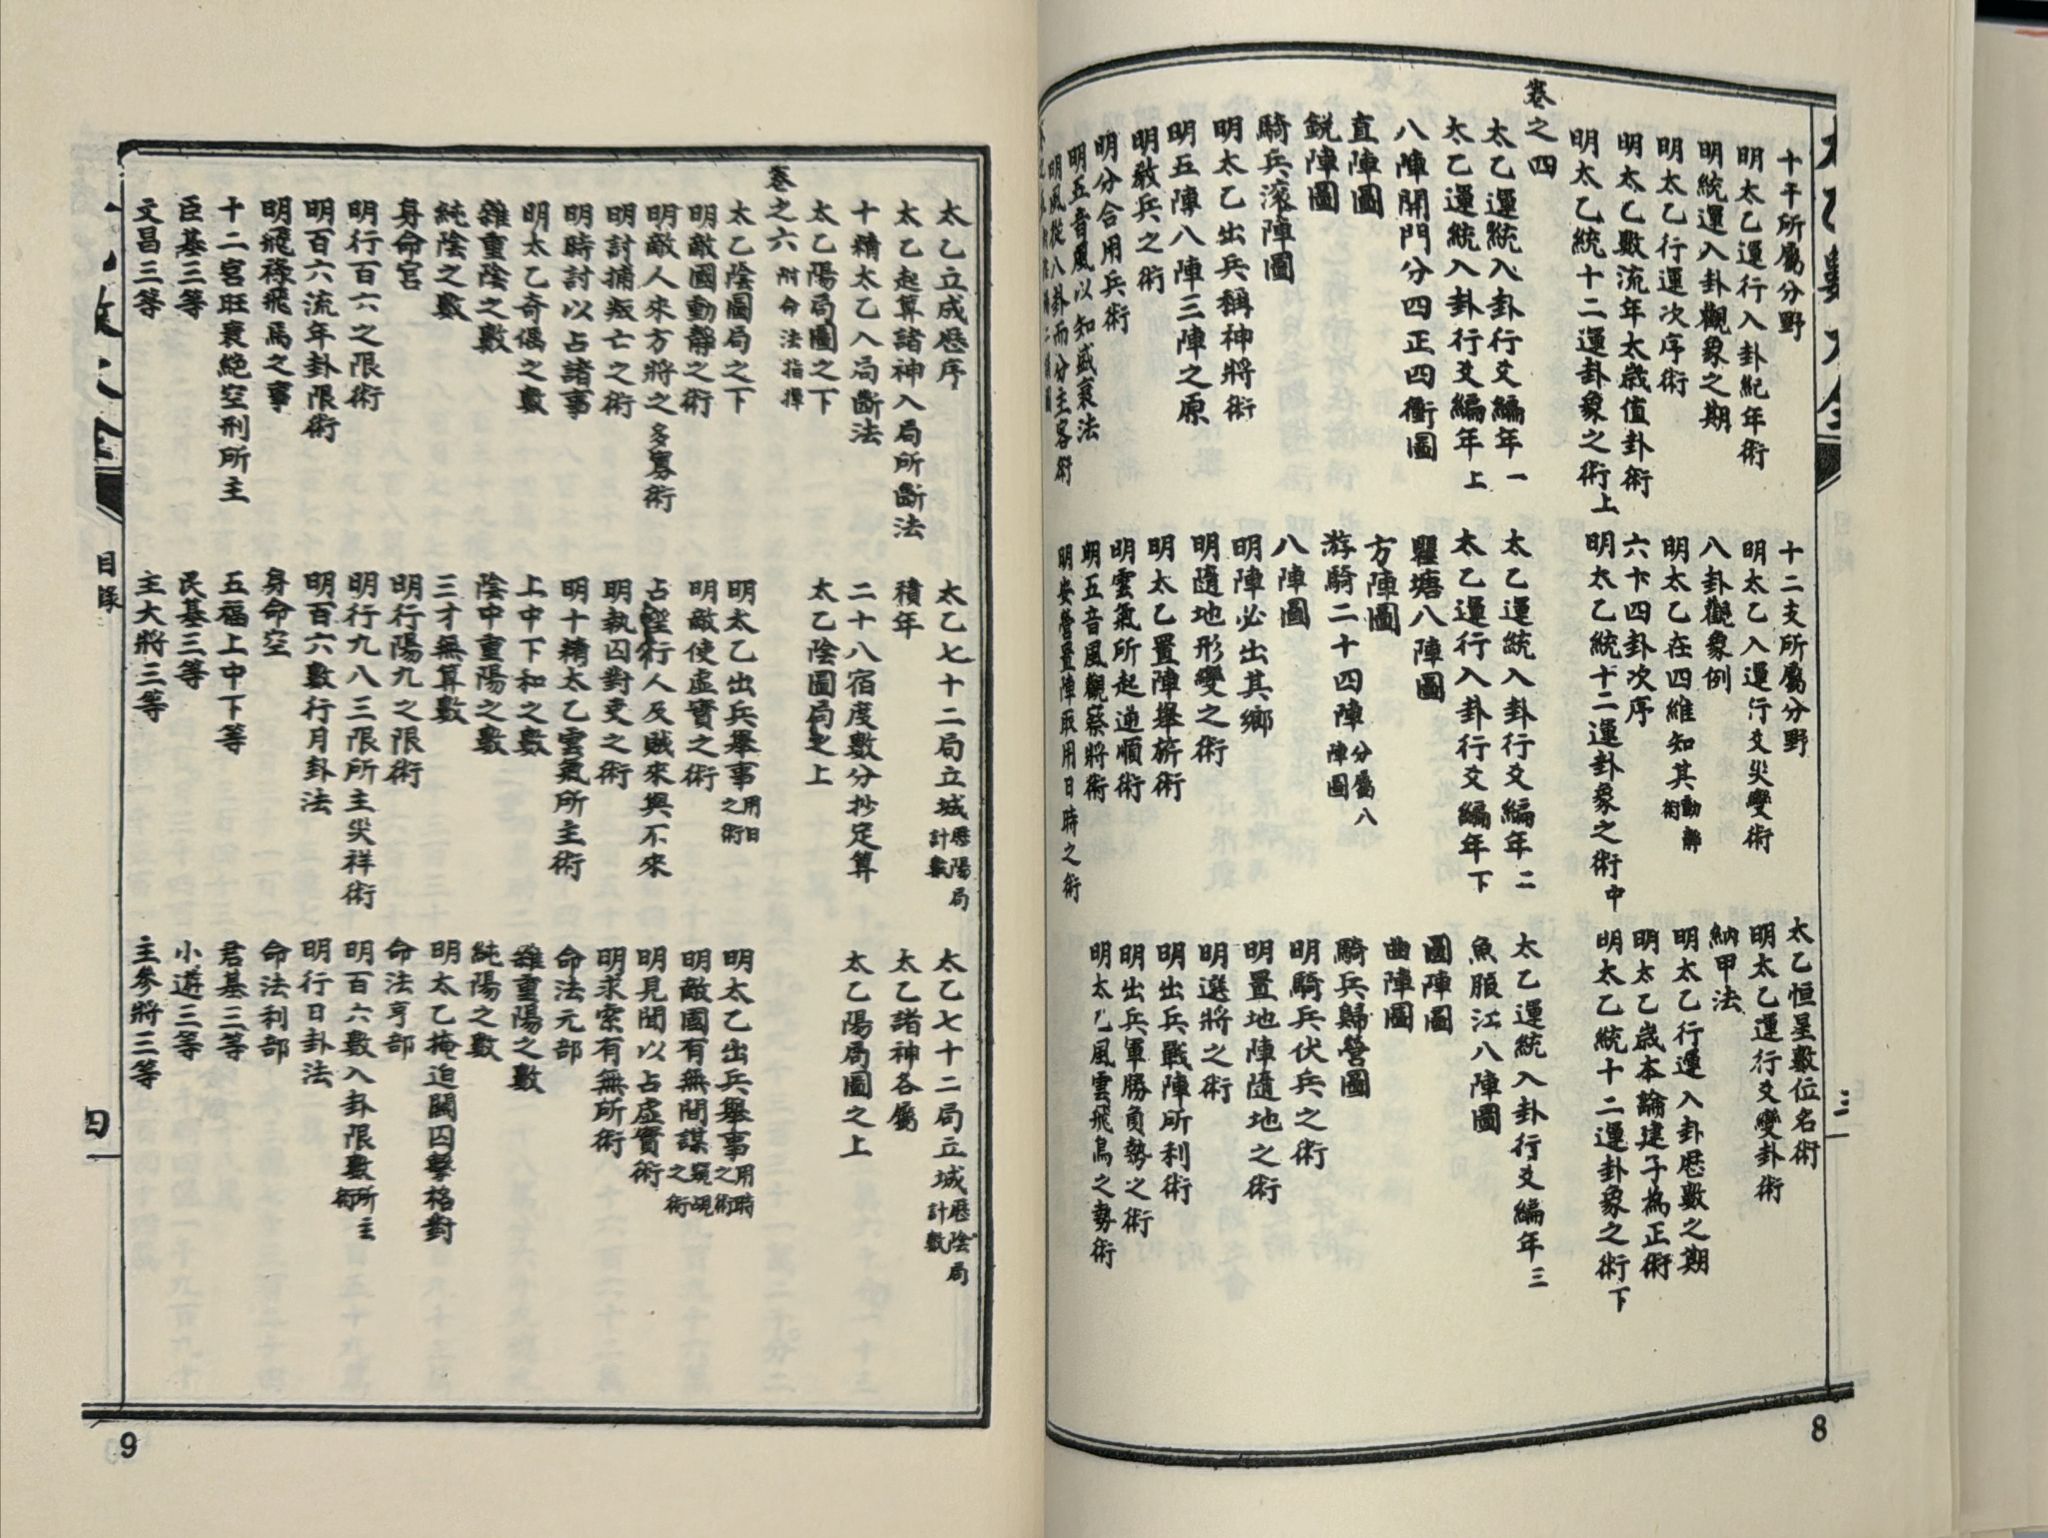 十干所屬分野
十二支所屬分野
太乙恒星數位名術
明太乙運行入卦紀年術
明太乙入運行爻災變術
明太乙運行爻變卦術
明統運入卦觀象之期
八卦觀象例
納甲法
明太乙行運次序術
明太乙在四維知其動靜術
明太乙行運入卦曆數之期
明太乙數流年太歲值卦術
六十四卦次序
明太乙歲本論建子為正術
明太乙統十二運卦象之術上
明太乙統十二運卦象之術中
明太乙統十二運卦象之術下
卷之四
太乙運統入卦行爻編年一
太乙運統入卦行爻編年二
太乙運統入卦行爻編年三
太乙運統入卦行爻編年上
太乙運行入卦行爻編年下
魚腹江八陣圖
八陣開門分四正四衝圖
瞿塘八陣圖
圓陣圖
直陣圖
方陣圖
曲陣圖
銳陣圖
游騎二十四陣分屬八陣圖
騎兵歸營圖
騎兵滾陣圖
八陣圖
明騎兵伏兵之術
明太乙出兵稱神將術
明陣必出其鄉
明置地陣隨地之術
明五陣八陣三陣之原
明隨地形變之術
明選將之術
明教兵之術
明太乙置陣舉旂術
明出兵戰陣所利術
明分合用兵術
明雲氣所起逆順術
明出兵軍勝負勢之術
明五音風以知盛衰法
明五音風觀察將術
明太乙風雲飛鳥之勢術
明風從八卦而分主客術
明安營置陣取用日時之術
三
8
太乙立成曆序
太乙七十二局立城曆陽局計數
太乙七十二局立城曆陰局計數
太乙起算諸神入局所斷法
積年
太乙諸神各屬
十精太乙入局斷法
二十八宿度數分抄定算
太乙陽局圖之上
太乙陽局圖之下
太乙陰圖局之上
卷之六附命法指掌
太乙陰圖局之下
明太乙出兵舉事用日之術
明太乙出兵舉事用時之術
明敵國動靜之術
明敵使虛實之術
明敵國有無間諜窺覘之術
明敵人來方將之多寡術
占淫行人及賊來與不來
明見聞以占虛實術
明討捕叛亡之術
明執囚對吏之術
明求索有無所術
明時討以占諸事
明十精太乙雲氣所主術
命法元部
明太乙奇偶之數
上中下和之數
雜重陽之數
雜重陰之數
陰中重陽之數
純陽之數
純陰之數
三才無算數
明太乙掩迫關囚擊格對
身命宮
明行陽九之限術
命法亨部
明行百六之限術
明行九八三限所主災祥術
明百六數入卦限數所主術
明百六流年卦限術
明百六數行月卦法
明行日卦法
明飛祿飛馬之事
身命空
命法利部
十二宮旺衰絕空刑所主
五福上中下等
君基三等
臣基三等
民基三等
小遊三等
文昌三等
主大將三等
主參將三等
目錄
四
9